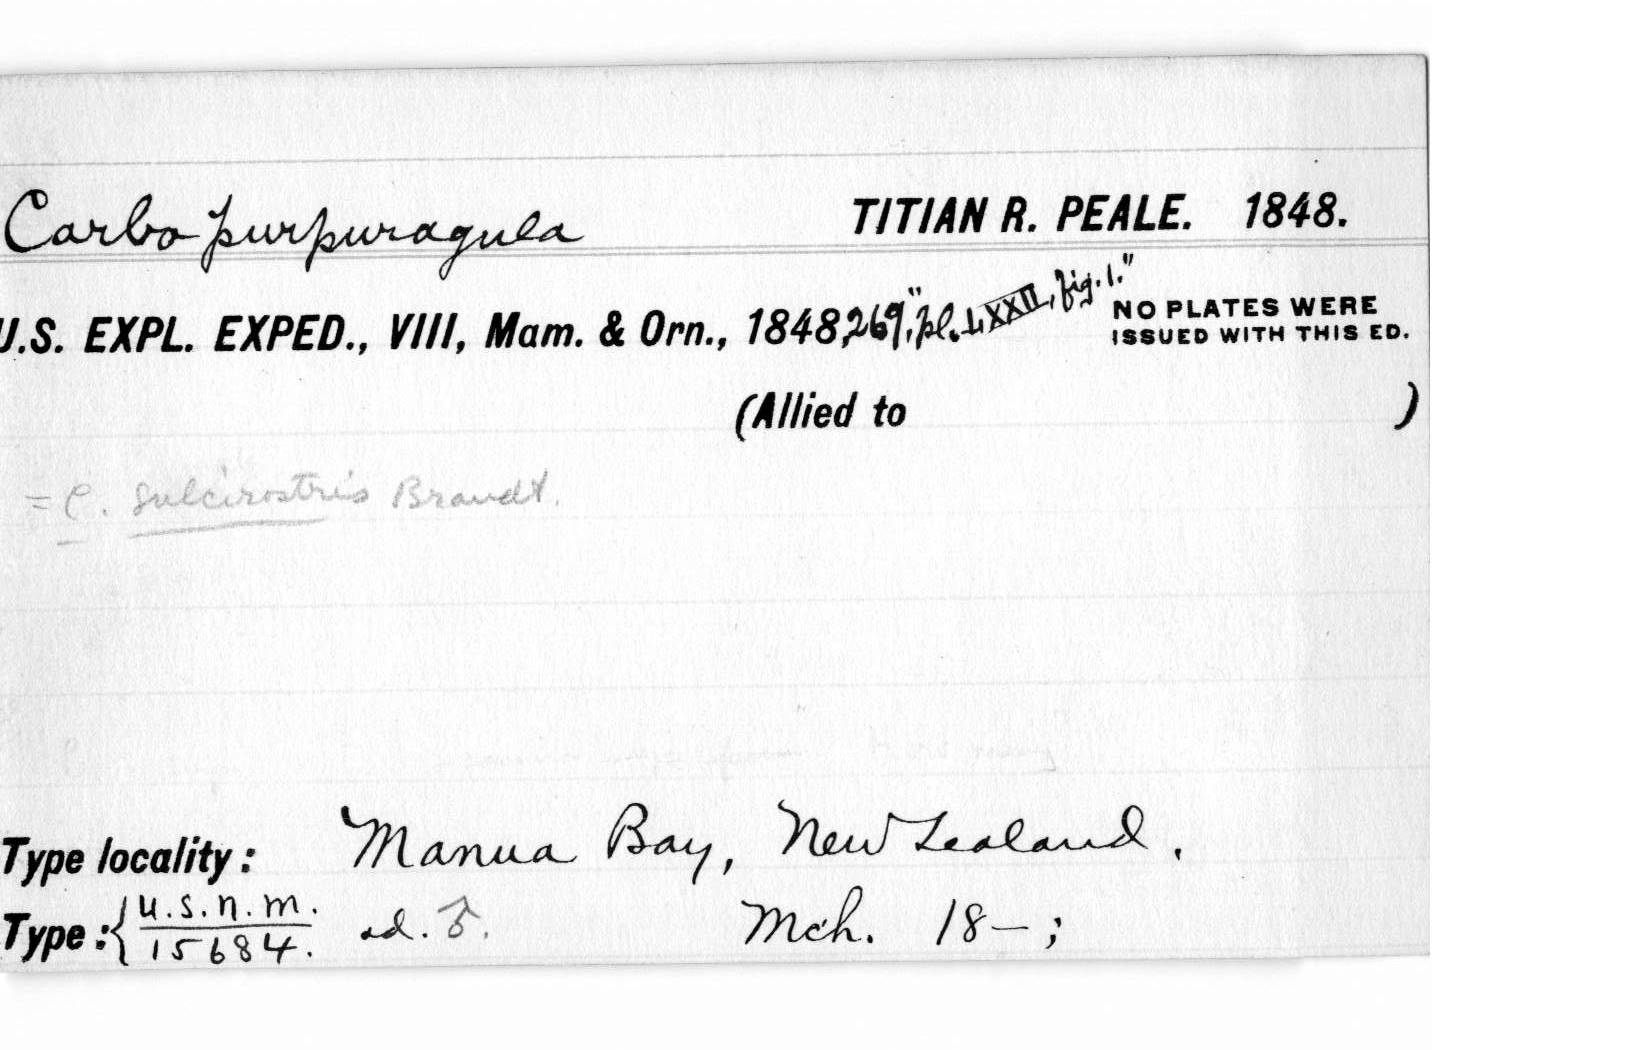 Carbo purpuragula TITIAN R. PEALE. 1848.
U.S. EXPL. EXPED., VIII, Mam. & Orn., 1848, 269, "pl. LXXII, fig. 1." NO PLATES WERE
ISSUED WITH THIS ED.
(Allied to )
= C. sulcirostris Brandt.
Type locality: Manua Bay, New Zealand.
Type: { U.S.N.M. ad. ♂. Mch. 18–;
15684.